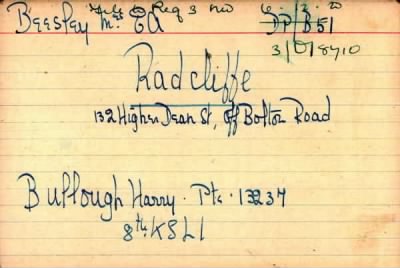 Beesley Mrs EA
DP/B51
3/0/8710
Radcliffe
132 Higher Dean St, Off Bolton Road
Bullough Harry. Pte. 13237
8th. KSLI